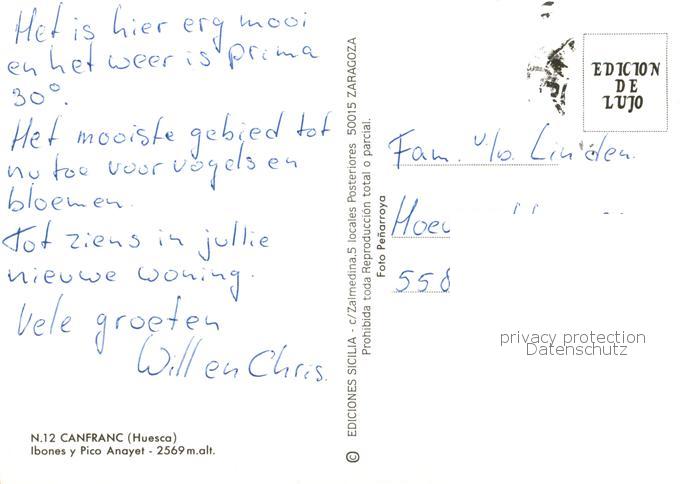 Het is hier erg mooi
en het weer is prima
30°.
Het mooiste gebied tot
nu toe voor vogels en
bloemen.
Tot ziens in jullie
nieuwe woning.
Vele groeten
Will en Chris.
N.12 CANFRANC (Huesca)
Ibones y Pico Anayet - 2569 m.alt.
© EDICIONES SICILIA - c/Zalmedina,5 locales Posteriores 50015 ZARAGOZA
Prohibida toda Reproducción total o parcial.
Foto Peñarroya
EDICION
DE
LUJO
Fam. v/d. Linden.
558
privacy protection
Datenschutz